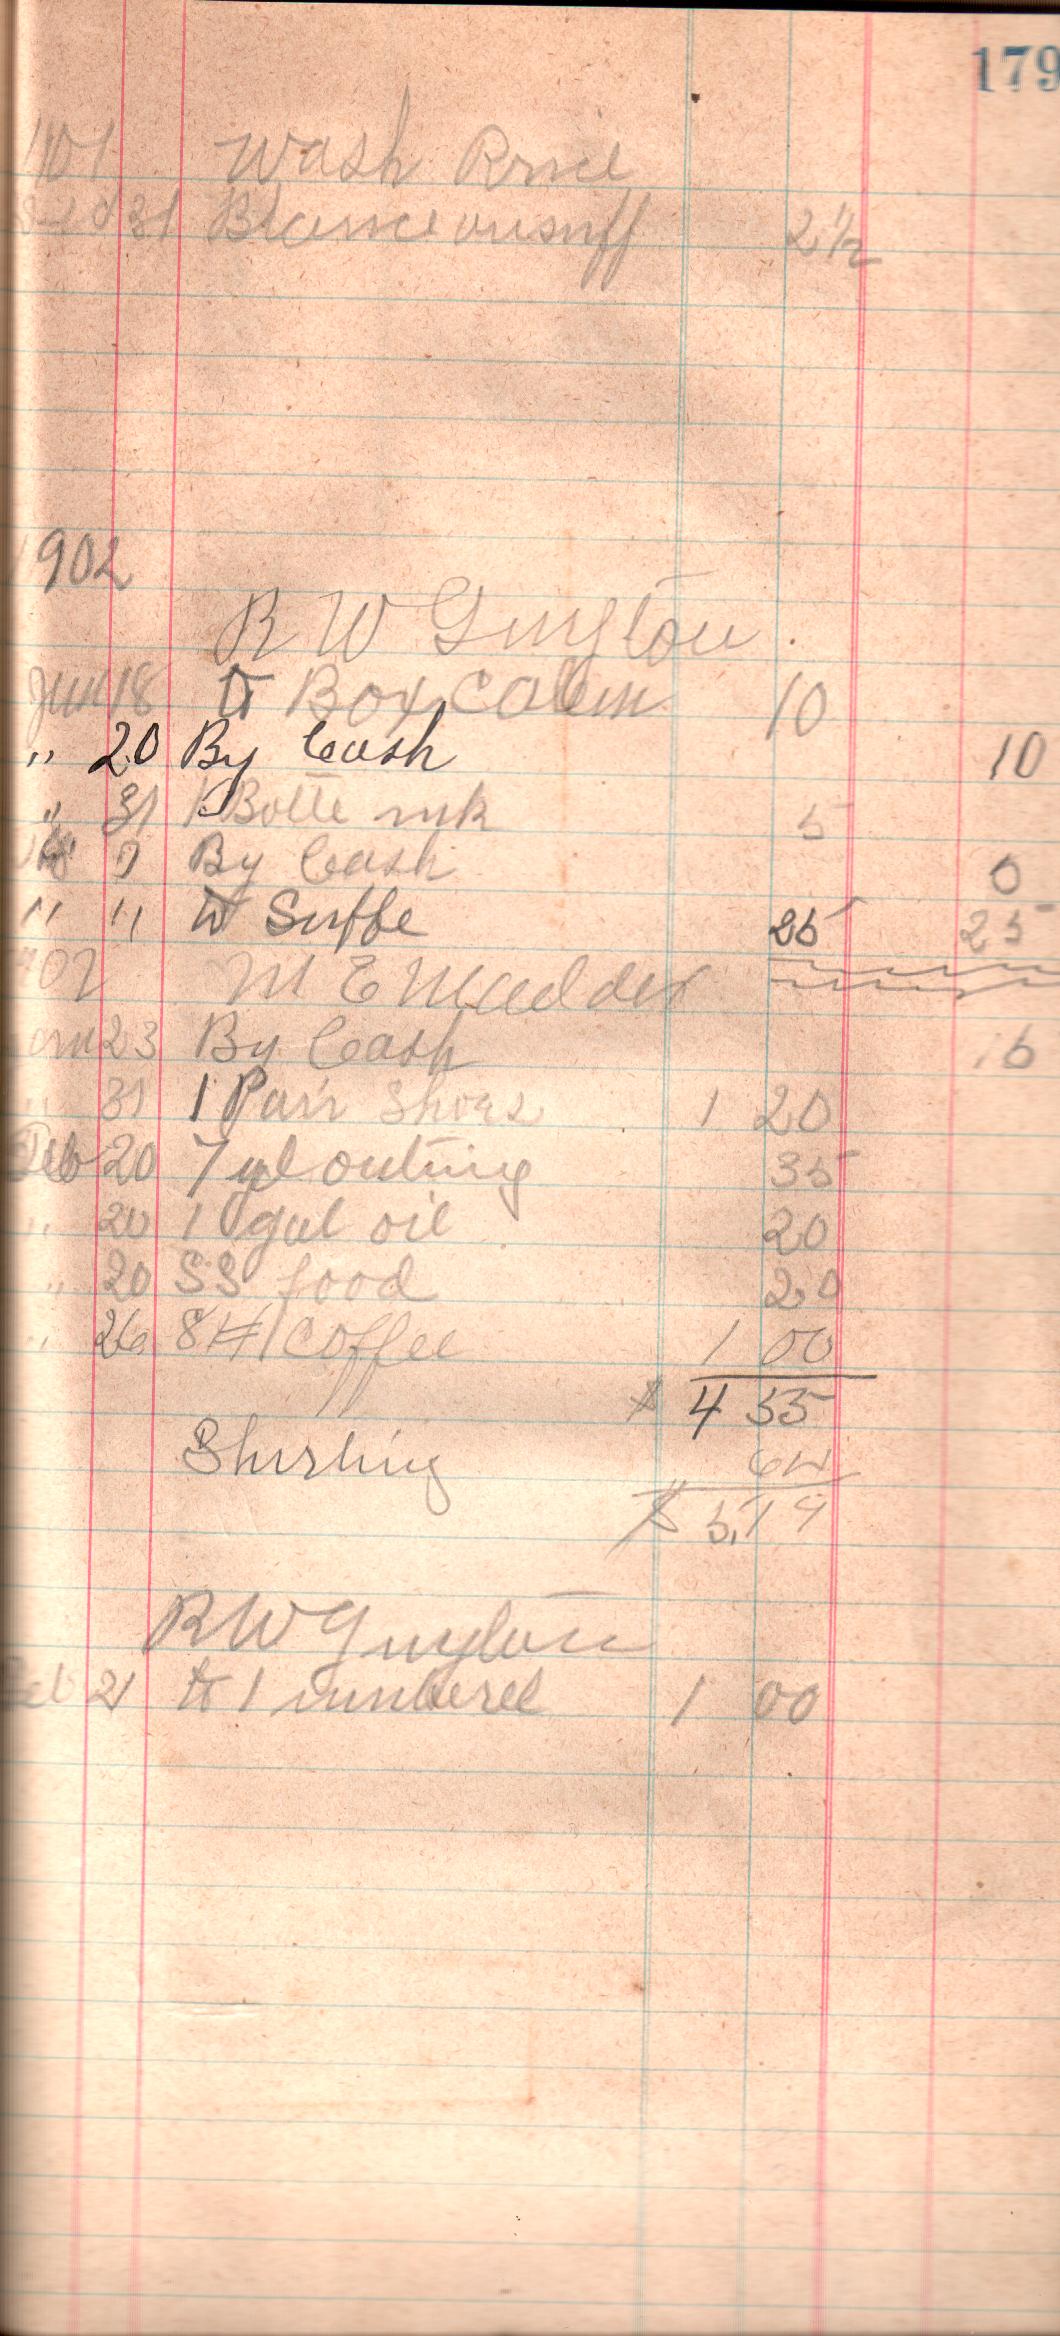 179
Wash Price
31 Balance on snuff 2 1/2
1902
R W Guyton
Jan 18 to Box Calem 10
" 20 By Cash 10
" 31 1 Botte ink 5
7 By Cash 0
" " to Suffe 25 25
M E Madder
23 By Cash
" 31 1 Pair Shoes 1 20
Feb 20 7 yd outing 35
" 20 1 gal oil 20
" 20 SS food 20
" 26 8# Coffee 1 00
$ 4 55
Shirting 64
$ 5,19
R W Guyton
Feb 21 to 1 umberel 1 00